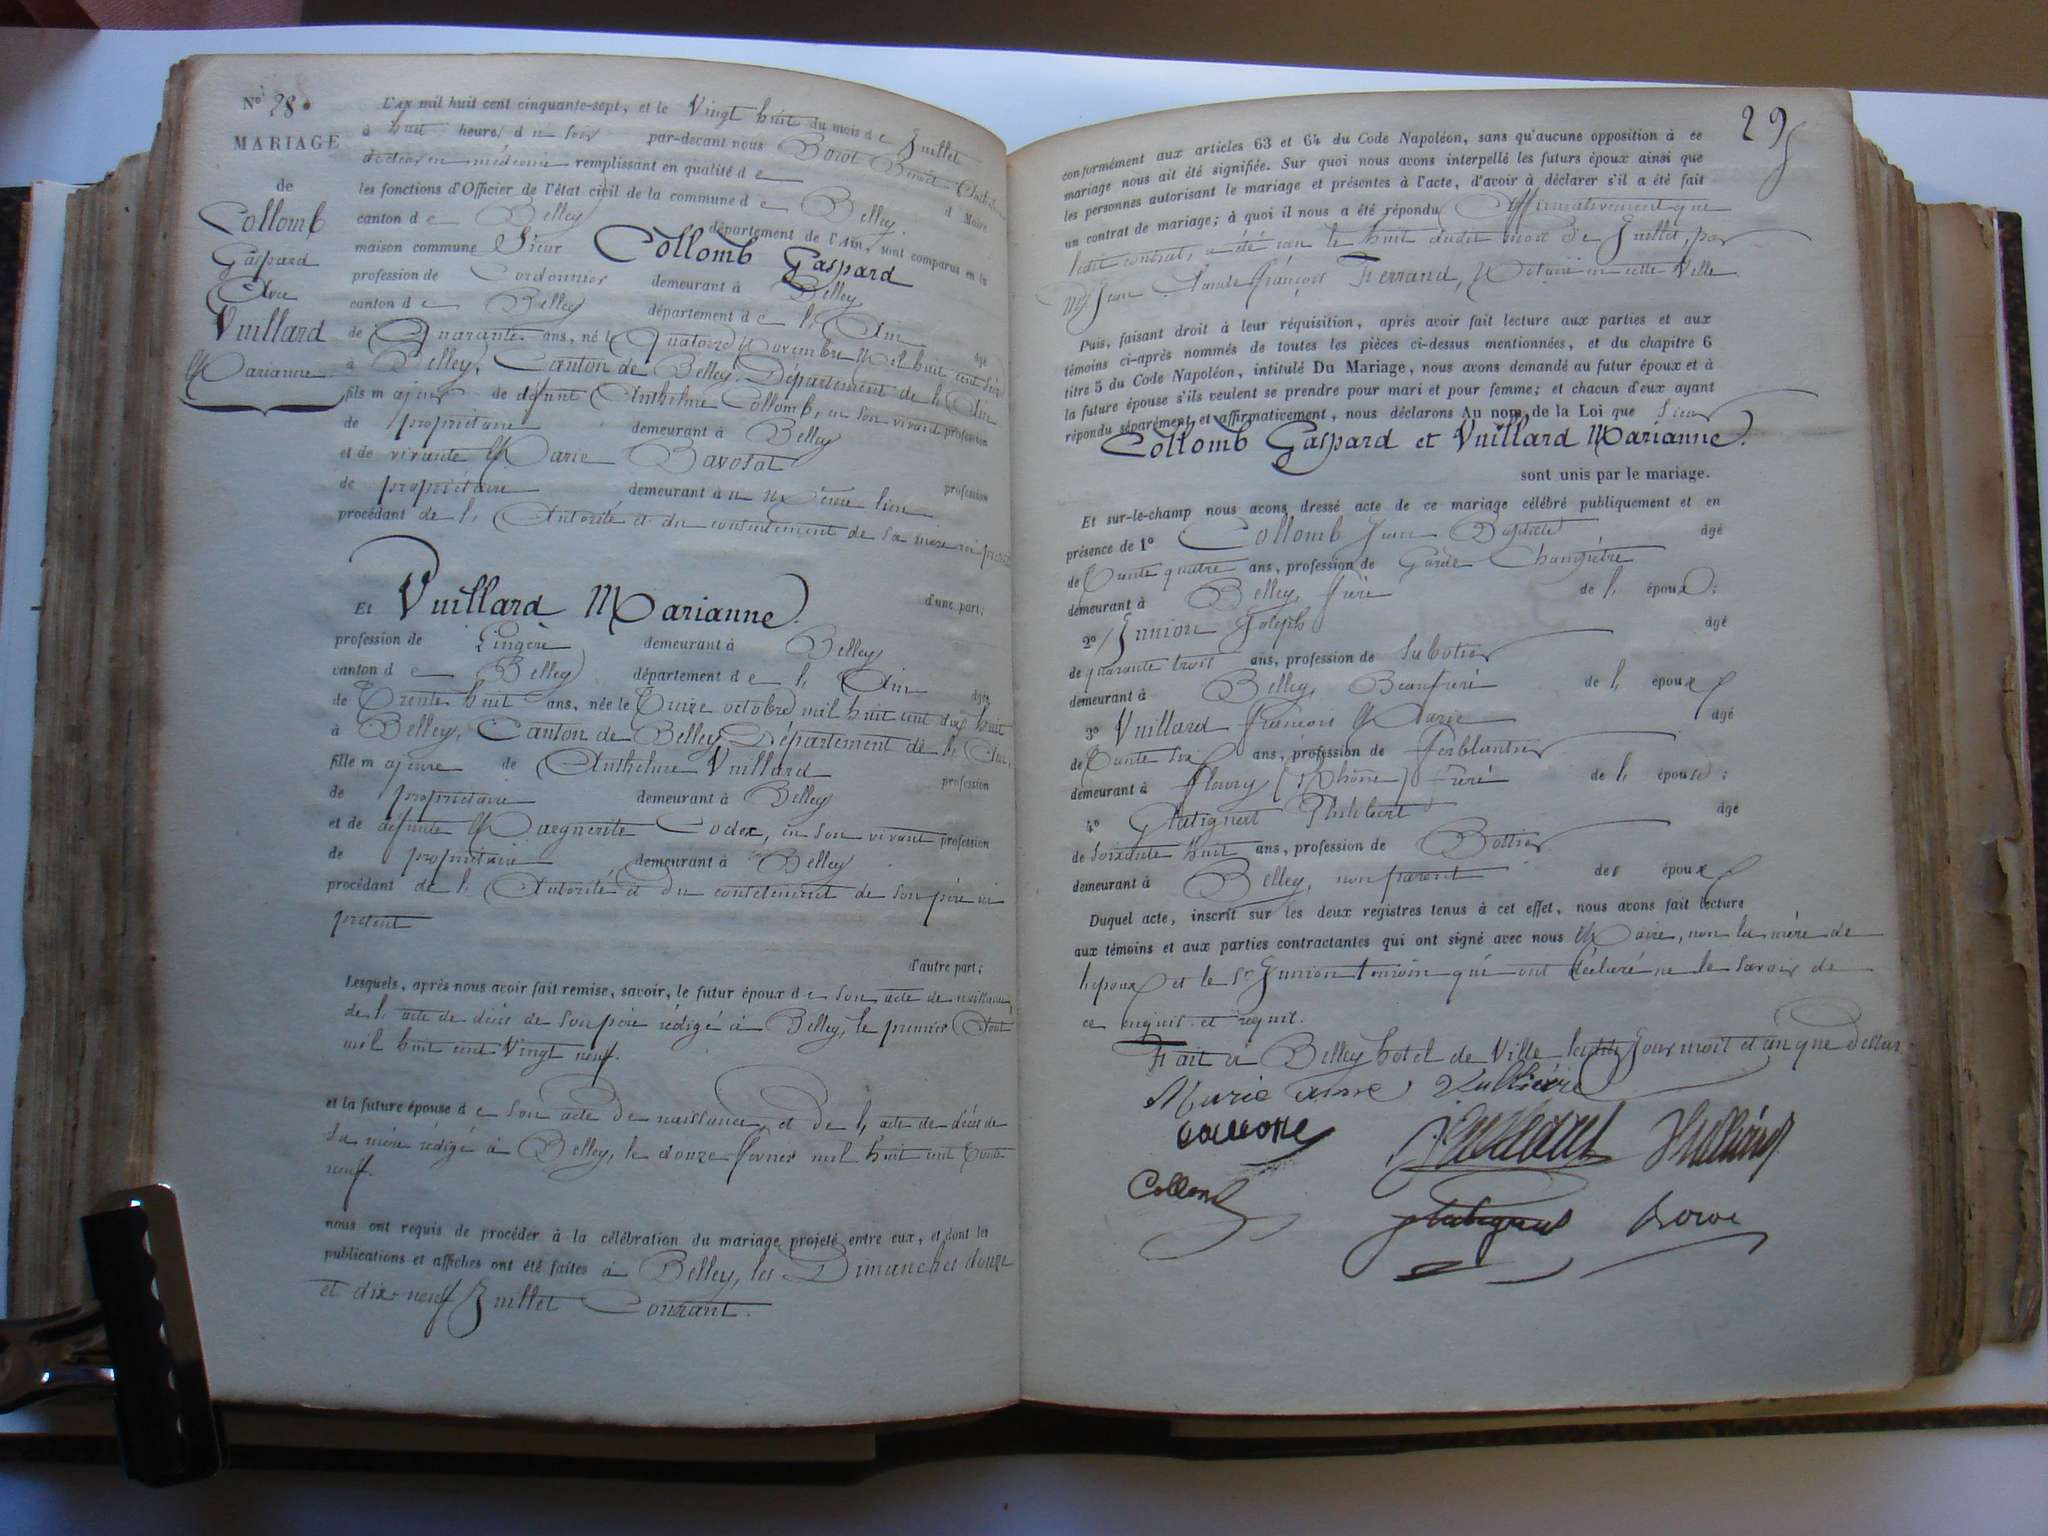 N° 28.
MARIAGE
de
Collomb
Gaspard
Avec
Vuillard
Marianne
L'an mil huit cent cinquante-sept, et le Vingt huit du mois de Juillet
à huit heures du soir par-devant nous Benoit
docteur en médecine remplissant en qualité de Maire
les fonctions d'Officier de l'état civil de la commune de Belley
canton de Belley département de l'Ain, sont comparus en la
maison commune Sieur Collomb Gaspard
profession de Cordonnier demeurant à Belley
canton de Belley département de l'Ain âgé
de Quarante ans, né le Quatorze Novembre Mil huit cent
à Belley, Canton de Belley, Département de l'Ain
fils majeur de défunt Anthelme Collomb, en son vivant profession
de propriétaire demeurant à Belley
et de vivante Marie Bavosat profession
de propriétaire demeurant à u même lieu
procédant de l'Autorité et du consentement de sa mère ici présente
d'une part;
Et Vuillard Marianne.
profession de Lingère demeurant à Belley
canton de Belley département de l'Ain âgée
de Trente huit ans, née le Onze octobre mil huit cent dix huit
à Belley, Canton de Belley, Département de l'Ain,
fille majeure de Anthelme Vuillard profession
de propriétaire demeurant à Belley
et de défunte Marguerite Codex, en son vivant profession
de propriétaire demeurant à Belley
procédant de l'Autorité et du consentement de son père ici
présent
d'autre part;
Lesquels, après nous avoir fait remise, savoir, le futur époux de son acte de naissance,
de l'acte de décès de son père rédigé à Belley, le premier Août
mil huit cent Vingt neuf.
et la future épouse de son acte de naissance, et de l'acte de décès de
sa mère rédigé à Belley, le douze février mil huit cent Trente
neuf.
nous ont requis de procéder à la célébration du mariage projeté entre eux, et dont les
publications et affiches ont été faites à Belley, les Dimanches douze
et dix-neuf Juillet Courant.
29
conformément aux articles 63 et 64 du Code Napoléon, sans qu'aucune opposition à ce
mariage nous ait été signifiée. Sur quoi nous avons interpellé les futurs époux ainsi que
les personnes autorisant le mariage et présentes à l'acte, d'avoir à déclarer s'il a été fait
un contrat de mariage; à quoi il nous a été répondu Affirmativement que
ledit contrat, a été reçu le huit dudit mois de Juillet, par
Me Jean Claude françois Ferrand, Notaire en cette Ville
Puis, faisant droit à leur réquisition, après avoir fait lecture aux parties et aux
témoins ci-après nommés de toutes les pièces ci-dessus mentionnées, et du chapitre 6
titre 5 du Code Napoléon, intitulé Du Mariage, nous avons demandé au futur époux et à
la future épouse s'ils veulent se prendre pour mari et pour femme; et chacun d'eux ayant
répondu séparément et affirmativement, nous déclarons Au nom de la Loi que Sieur
Collomb Gaspard et Vuillard Marianne.
sont unis par le mariage.
Et sur-le-champ nous avons dressé acte de ce mariage célébré publiquement et en
présence de 1° Collomb Jean Baptiste âgé
de Trente quatre ans, profession de Garde Champêtre
demeurant à Belley, frère de l'époux;
2° Junion Joseph âgé
de quarante trois ans, profession de Sabotier
demeurant à Belley, Beaufrère de l'époux
3° Vuillard françois Marie âgé
de Trente six ans, profession de ferblantier
demeurant à fleury (Rhône) frère de l'épouse;
4° Platignert Philibert âgé
de soixante huit ans, profession de Bottier
demeurant à Belley, non parent des époux
Duquel acte, inscrit sur les deux registres tenus à cet effet, nous avons fait lecture
aux témoins et aux parties contractantes qui ont signé avec nous Maire, non la mère de
l'époux et le Sr Junion témoin qui ont déclaré ne le savoir de
ce enquis et requis.
Fait à Belley hotel de Ville lesdits Jour mois et an que dessus
Marie anne
Collom